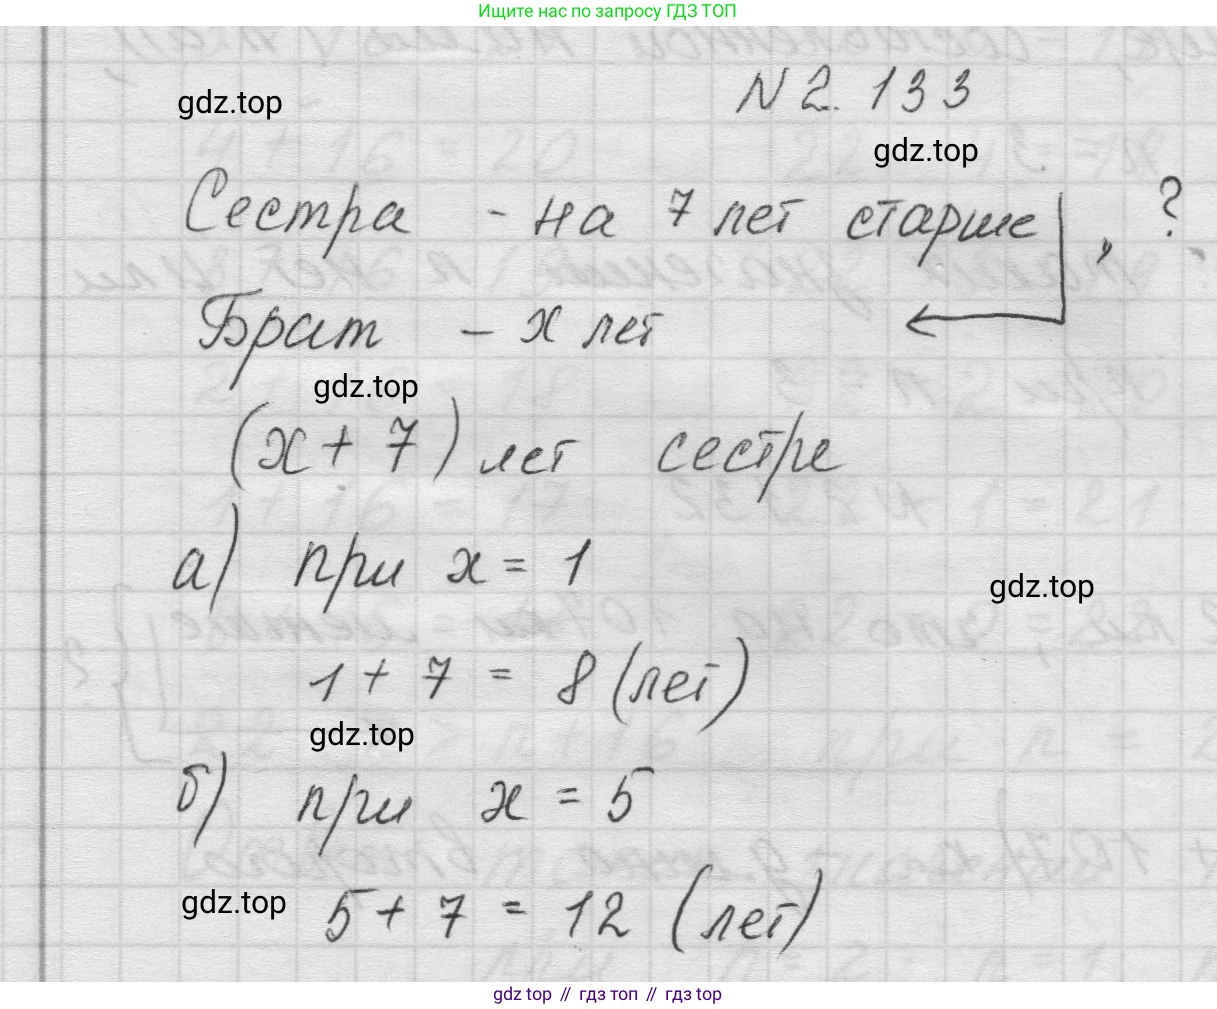 Ищите нас по запросу ГДЗ ТОП
N 2. 133
gdz.top
gdz.top
Сестра - на 7 лет старше, ?
Брат - х лет
gdz.top
(х + 7) лет сестре
а) при х = 1
gdz.top
1 + 7 = 8 (лет)
gdz.top
б) при х = 5
gdz.top
5 + 7 = 12 (лет)
gdz top // гдз топ // gdz top